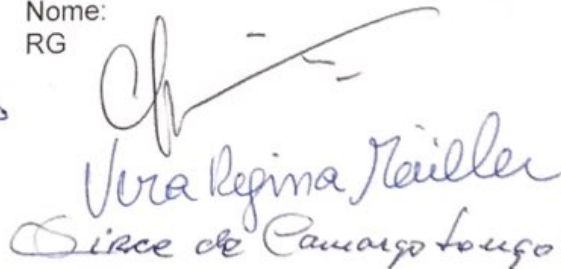 Nome:
RG
Vera Regina Mäiller
Dirce de Camargo Longo